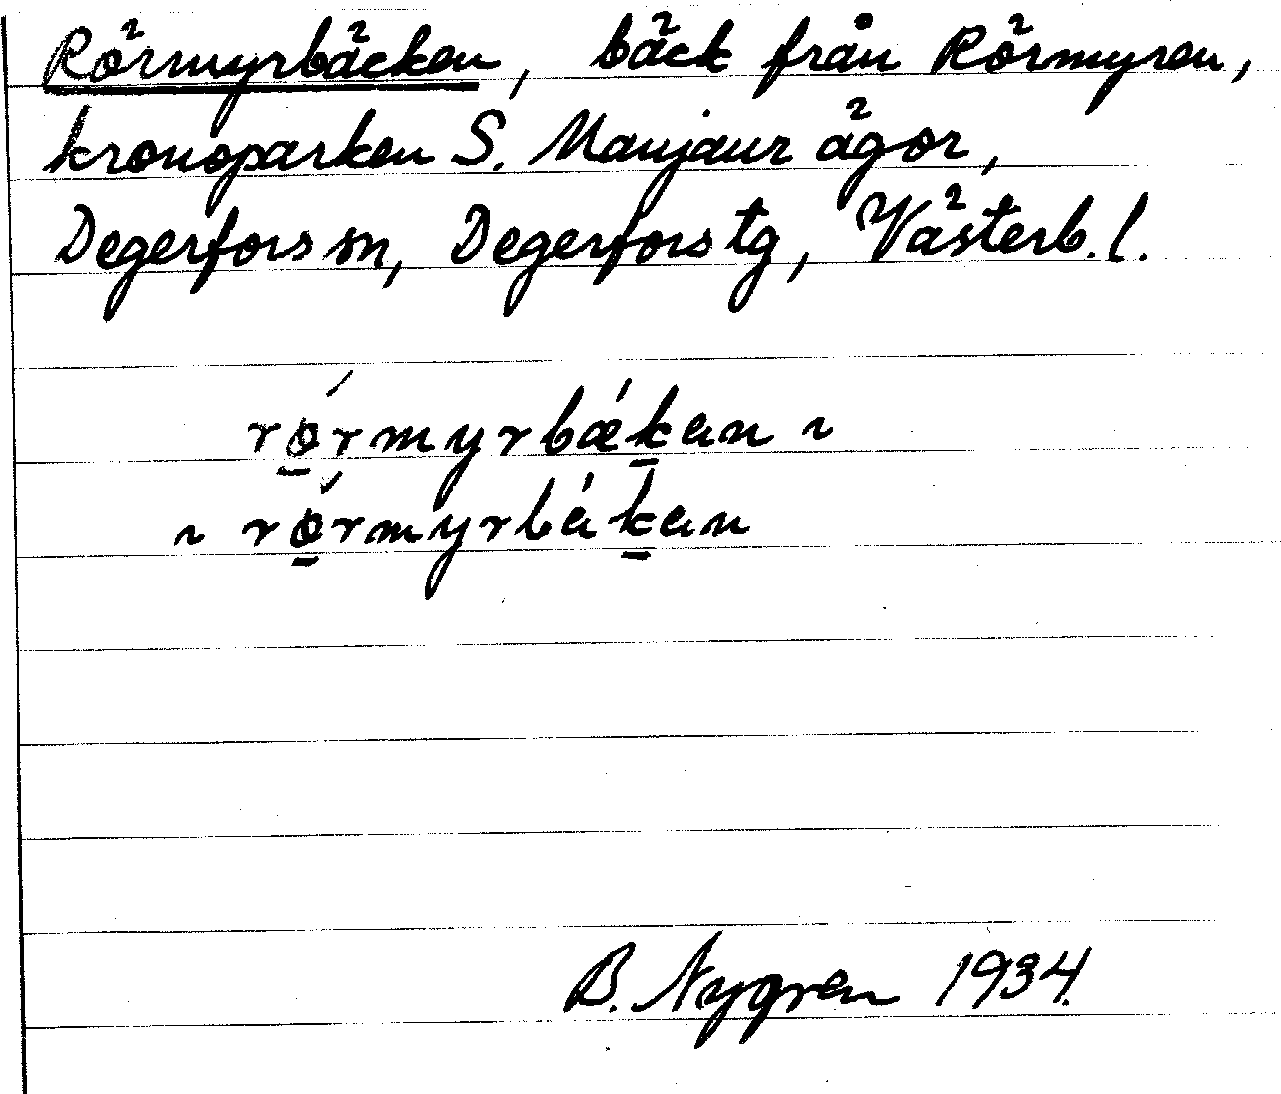 Rörmyrbäcken, bäck från Rörmyren,
kronoparken S. Manjaur ägor,
Degerfors sn, Degerfors tg, Västerb. l.
rǿ̱rmyrbǽḵan ~
~ rǿ̱rmyrbáḵan
B. Nygren 1934.